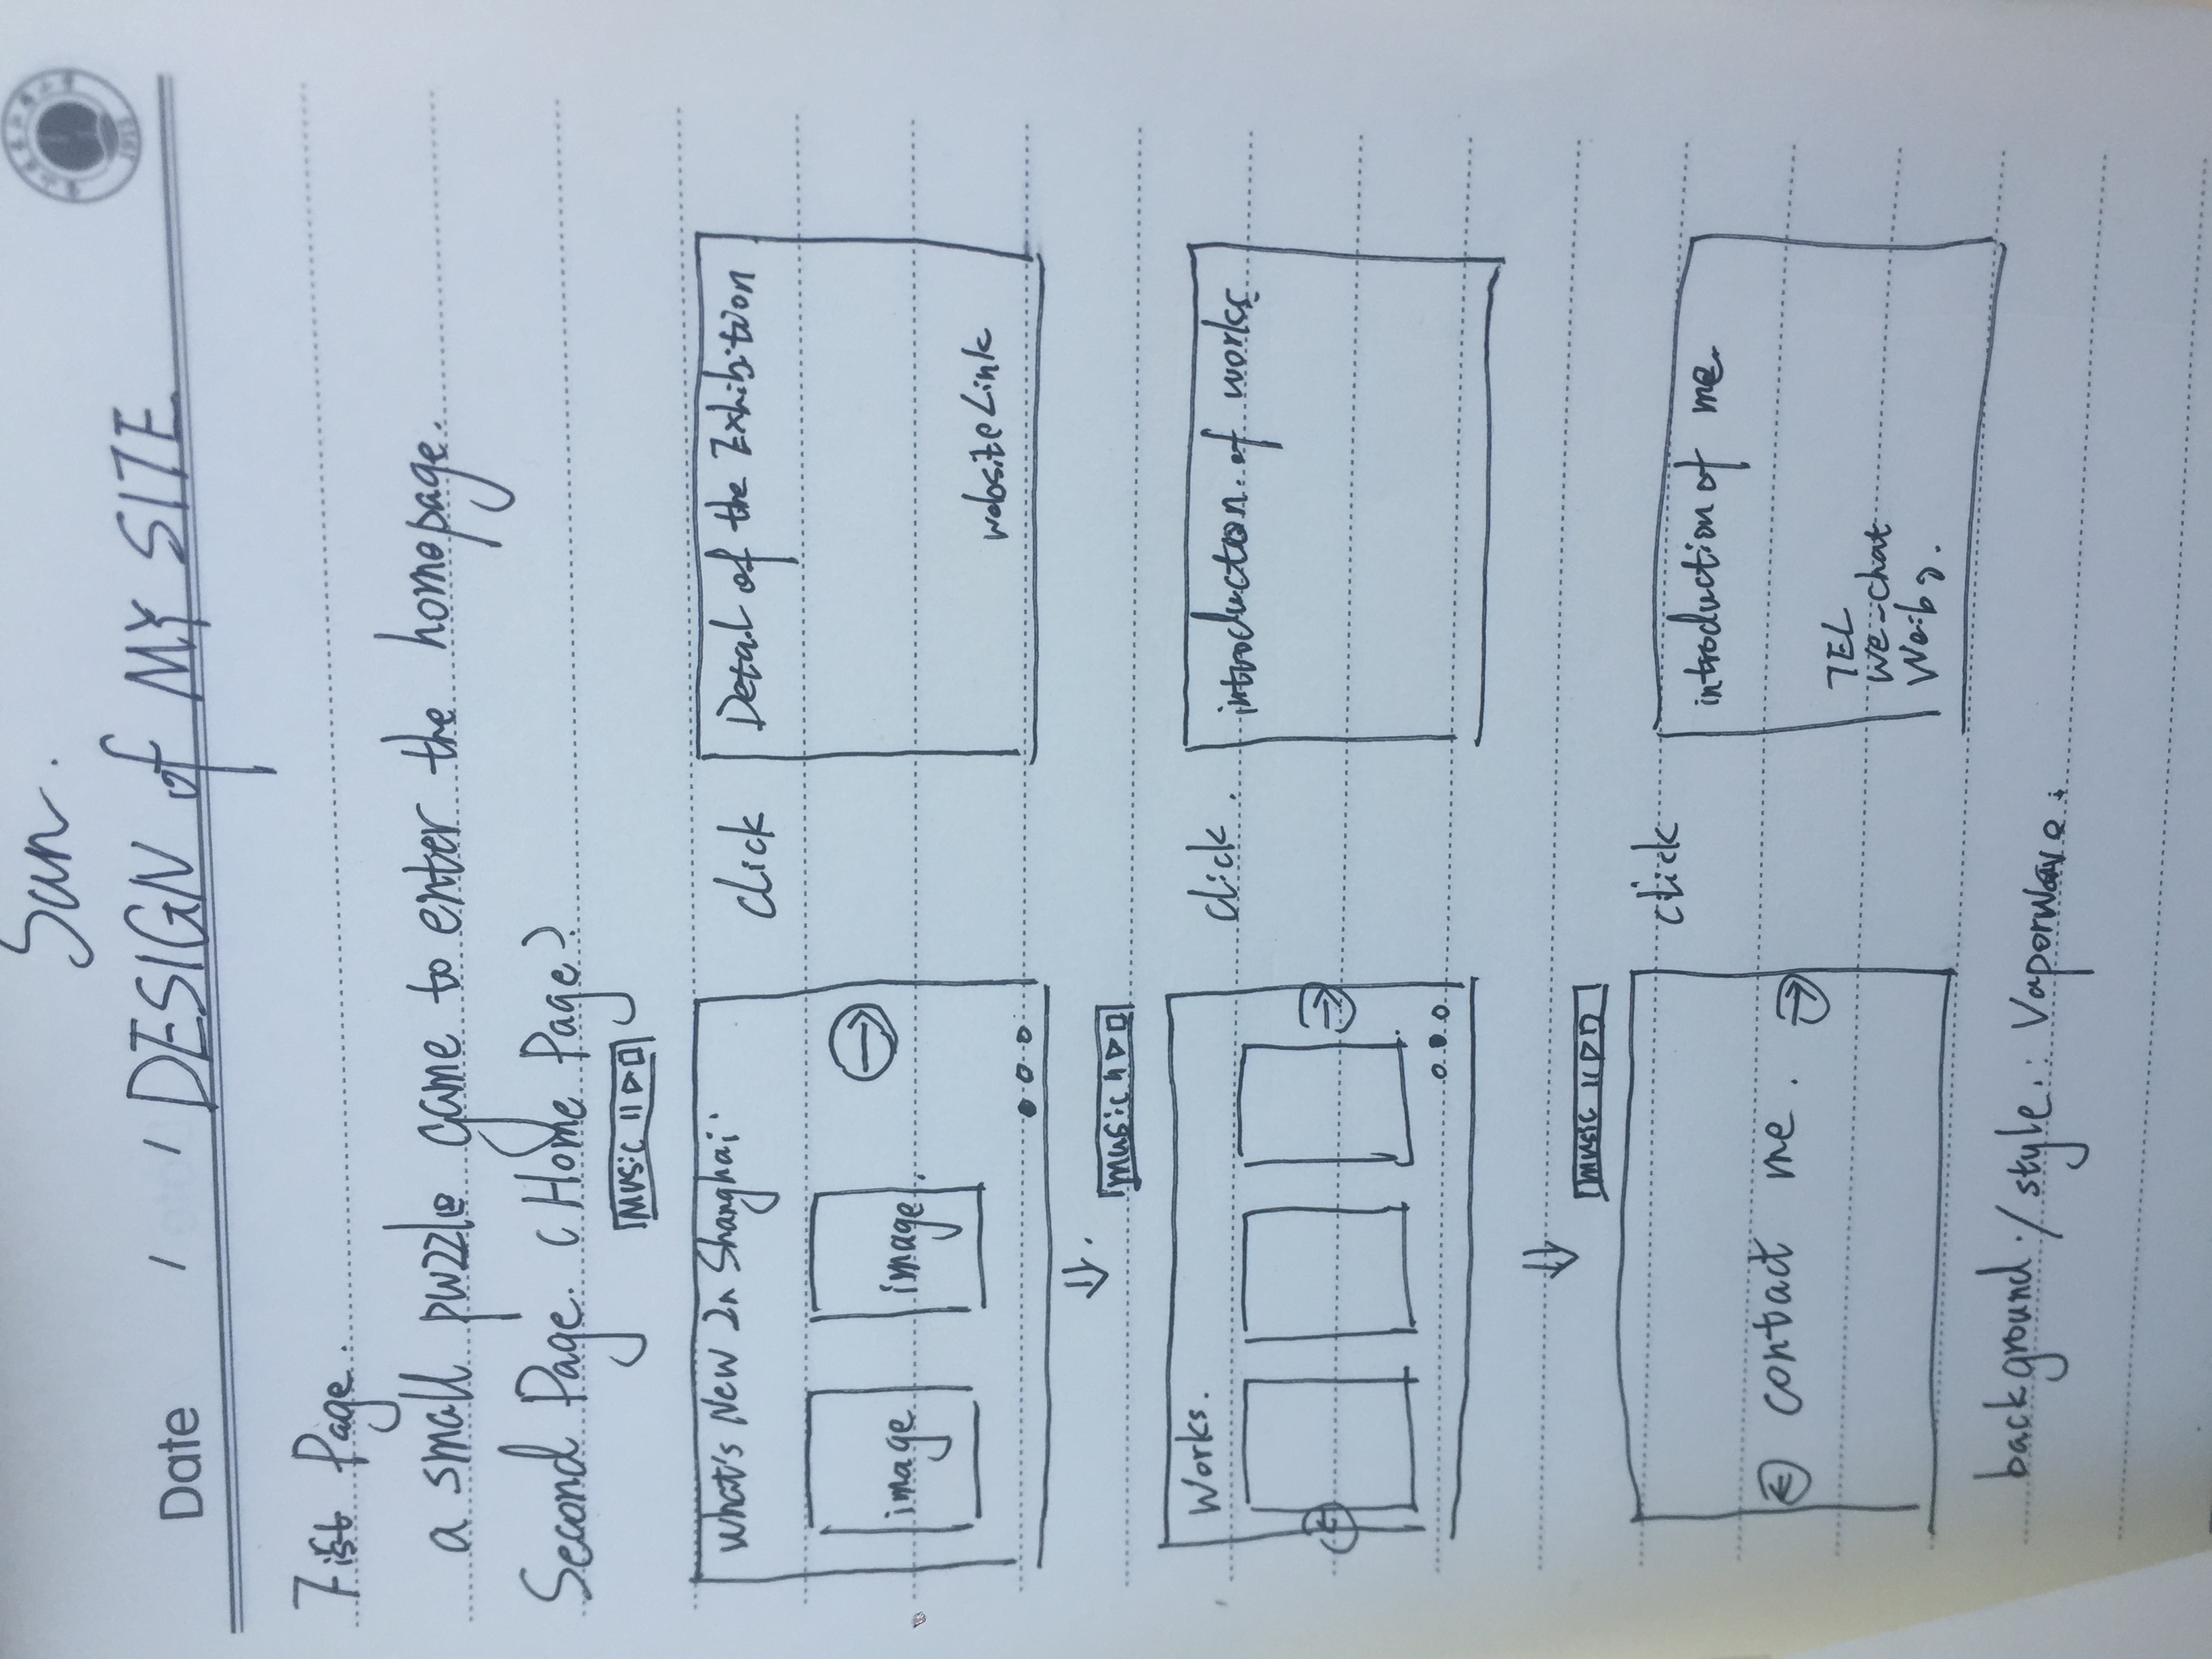 Sun.
DESIGN of MY SITE
Date / /
First Page.
a small puzzle game to enter the homepage.
Second Page. (Home Page?
Music
What's New In Shanghai
click
Detail of the Exhibition
image
image.
website Link
music
Works.
click.
introduction of works
music
click
introduction of me.
contact me.
TEL
We-chat
Weibo.
background / style: Vaporwave.
1912